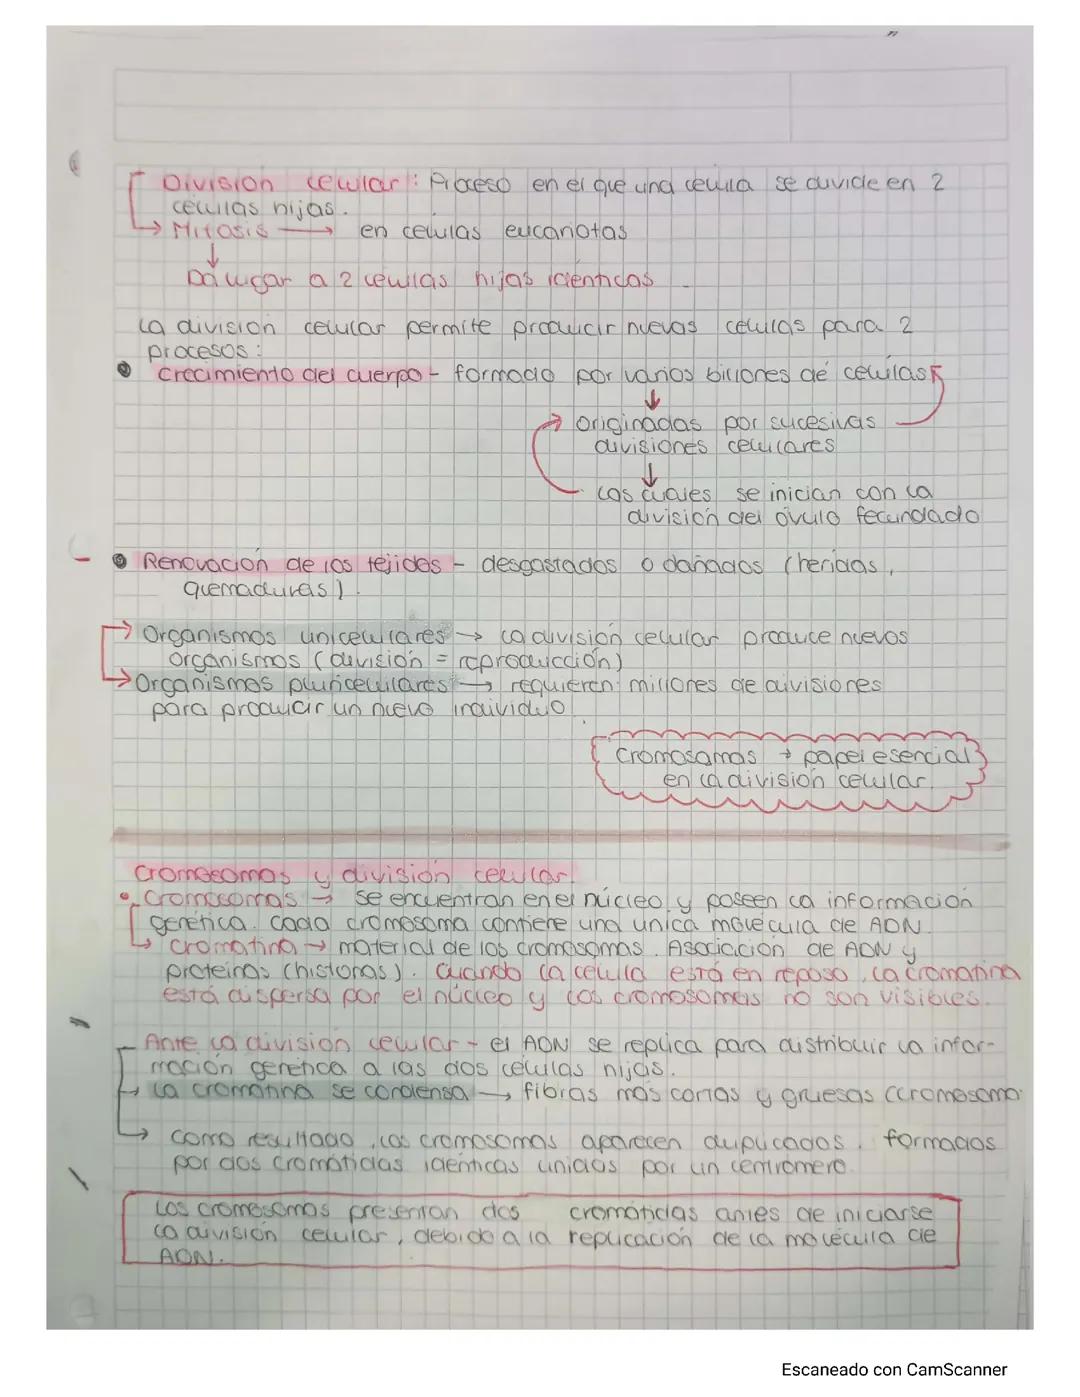 División celular: Proceso en el que una célula se divide en 2
células hijas.
→ Mitosis → en células eucariotas
↓
Da lugar a 2 células hijas idénticas
La división celular permite producir nuevas células para 2
procesos:
Crecimiento del cuerpo - formado por varios billones de células
↓
→ originadas por sucesivas
divisiones celulares
↓
Las cuales se inician con la
división del óvulo fecundado
Renovación de los tejidos - desgastados o dañados (heridas,
quemaduras).
→ Organismos unicelulares → la división celular produce nuevos
organismos (división = reproducción)
→ Organismos pluricelulares → requieren millones de divisiones
para producir un nuevo individuo.
Cromosomas → papel esencial
en la división celular.
Cromosomas y división celular
• Cromosomas → se encuentran en el núcleo y poseen la información
genética. Cada cromosoma contiene una única molécula de ADN.
→ Cromatina → material de los cromosomas. Asociación de ADN y
proteínas (histonas). Cuando la célula está en reposo, la cromatina
está dispersa por el núcleo y los cromosomas no son visibles.
Ante la división celular - el ADN se replica para distribuir la infor-
mación genética a las dos células hijas.
→ La cromatina se condensa → fibras más cortas y gruesas (cromosoma
→ como resultado, los cromosomas aparecen duplicados. formados
por dos cromátidas idénticas unidas por un centrómero.
Los cromosomas presentan dos cromátidas antes de iniciarse
la división celular, debido a la replicación de la molécula de
ADN.
Escaneado con CamScanner